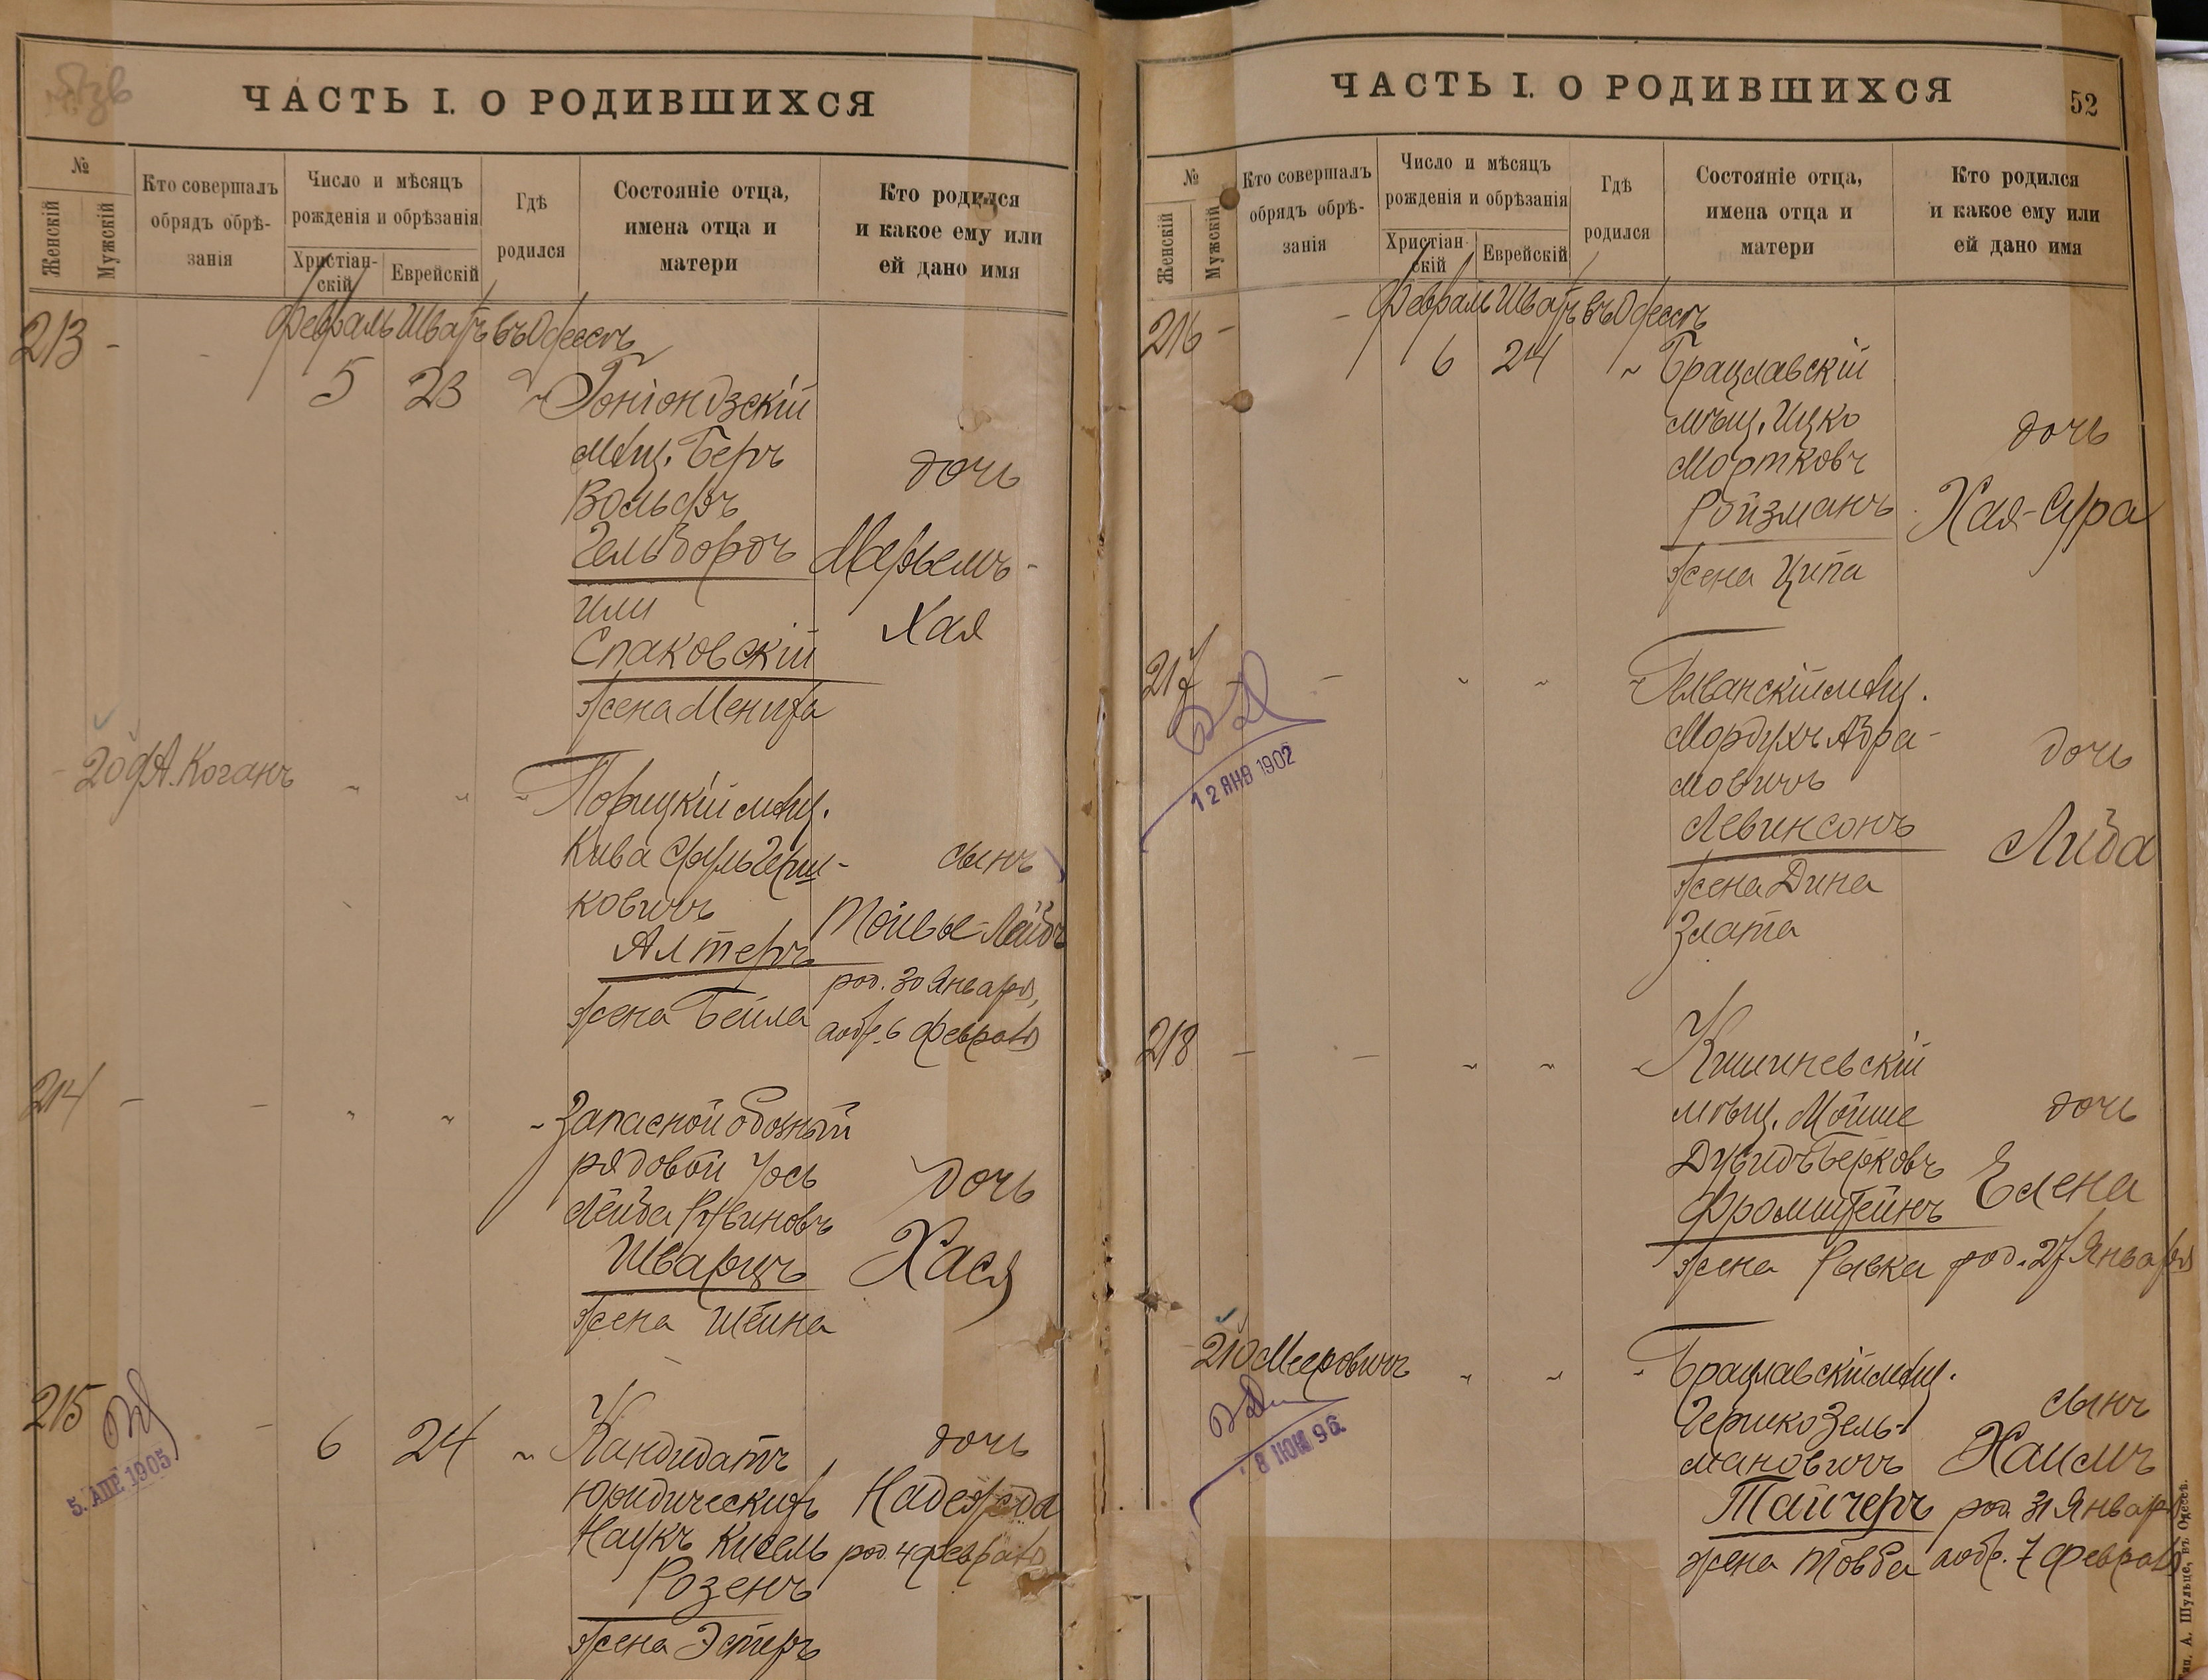 ЧАСТЬ I. О РОДИВШИХСЯ
№
Женскій
Мужскій
Кто совершалъ
обрядъ обрѣ-
занія
Число и мѣсяцъ
рожденія и обрѣзанія
Христіан-
скій
Еврейскій
Гдѣ
родился
Состояніе отца,
имена отца и
матери
Кто родился
и какое ему или
ей дано имя
Февраль Шватъ въ Одессѣ
213 - - 5 23 " Гоніондзскій
мѣщ. Беръ
Вольфъ
Гельбордъ
или
Спаковскій
жена Мениха
дочь
Мерьемъ-
Хая
- 209 А. Коганъ " " " Порицкій мѣщ.
Кива Сруль Герш-
ковичъ
Алтеръ
жена Бейла
сынъ
Тойвье-Лейбъ
род. 30 Января,
а обр. 6 Февраля
214 - - " " " Запасной обозный
рядовой Іось
Лейба Рувиновъ
Шварцъ
жена Шейна
дочь
Хася
215 - 6 24 " Кандидатъ
Юридическихъ
Наукъ Кисель
Розенъ
жена Эстеръ
дочь
Надежда
род. 4 Февраля
5. АПР 1905
ЧАСТЬ I. О РОДИВШИХСЯ
52
№
Женскій
Мужскій
Кто совершалъ
обрядъ обрѣ-
занія
Число и мѣсяцъ
рожденія и обрѣзанія
Христіан-
скій
Еврейскій
Гдѣ
родился
Состояніе отца,
имена отца и
матери
Кто родился
и какое ему или
ей дано имя
Февраль Шватъ въ Одессѣ
216 - - 6 24 " Брацлавскій
мѣщ. Ицко
Мортковъ
Ройзманъ
жена Ципа
дочь
Хая-Сура
217 - - " " " мѣщ.
Мордухъ Абра-
мовичъ
Левинсонъ
жена Дина
Злата
дочь
Либа
12 ЯНВ 1902
218 - - " " " Кишиневскій
мѣщ. Мойше
Дувидъ Берковъ
Фромштейнъ
жена Рывка
дочь
Елена
род. 27 Января
210 Мееровичъ " " " Брацлавскій мѣщ.
Гершко Зель-
мановичъ
Тайчеръ
жена Товба
сынъ
Хаимъ
род. 31 Января
а обр. 7 Февраля
А. Шульце, въ Одессѣ.